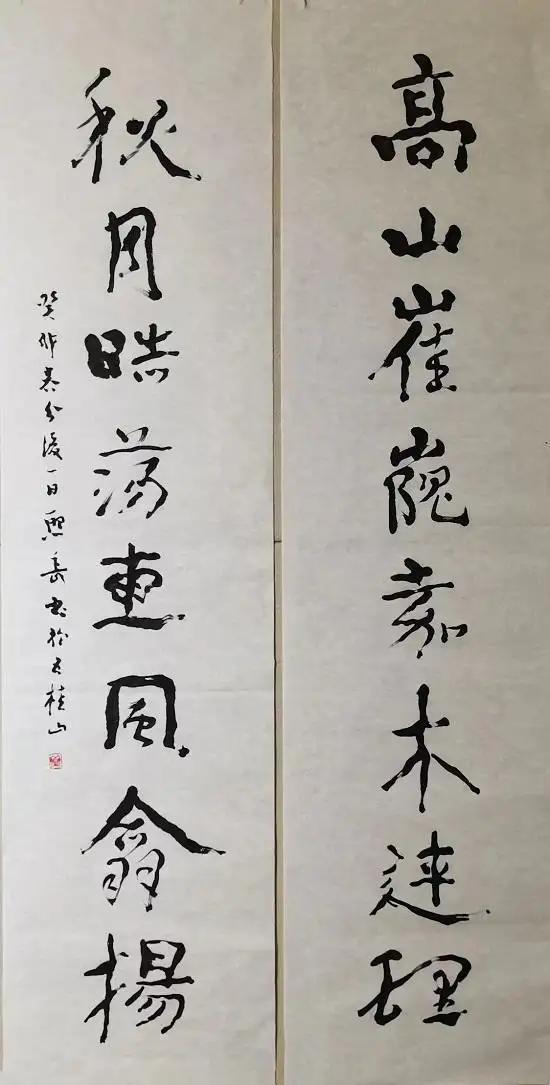 高山崔巍嘉木連理
秋月晧蕩惠風翕揚
癸卯春分後一日熙書於五桂山